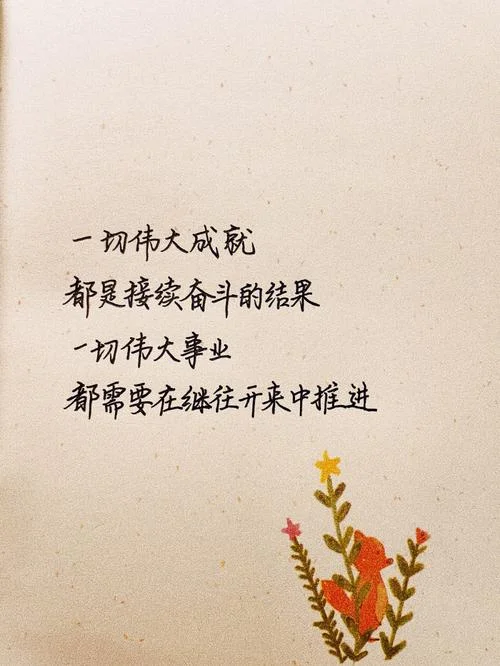 一切伟大成就
都是接续奋斗的结果
一切伟大事业
都需要在继往开来中推进